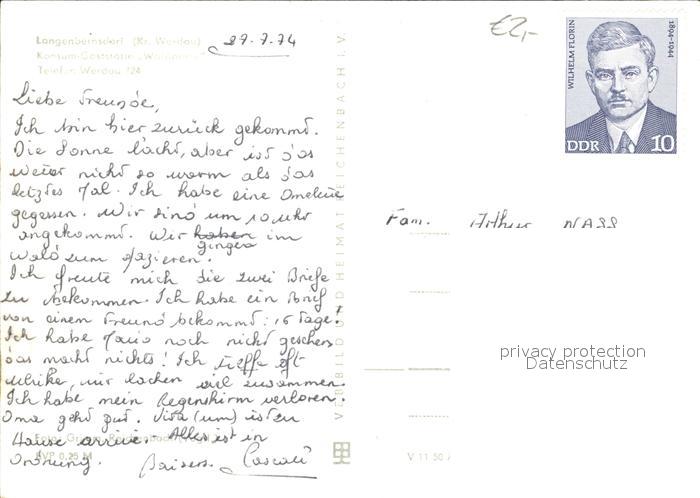 Langenbernsdorf (Kr. Werdau)
Konsum-Gaststätte
Telefon Werdau 724
29.7.74
Liebe Freunde,
Ich bin hier zurück gekommt.
Die Sonne lacht, aber ist das
weter nicht so warm als das
letztes Mal. Ich habe eine Omelette
gegessen. Wir sind um 10 uhr
angekommt. Wir haben im
gingen
Wald zum spazieren.
Ich freute mich die zwei Briefe
zu bekommen. Ich habe ein Brief
von einem Freund bekommt: 16 Tage!
Ich habe Mario noch nicht gesehen
das macht nichts! Ich treffe oft
Ulrike, wir lachen viel zusammen.
Ich habe mein Regenshirm verloren.
Oma geht gut. Visa (um) ist zu
Hause arrivé. Alles ist in
Ordnung. Baisers. Pascale
EVP 0,25 M
VERLAG BILD UND HEIMAT REICHENBACH I. V.
V 11 50
€2,-
WILHELM FLORIN
1894-1944
DDR 10
Fam. Arthur NASS
privacy protection
Datenschutz